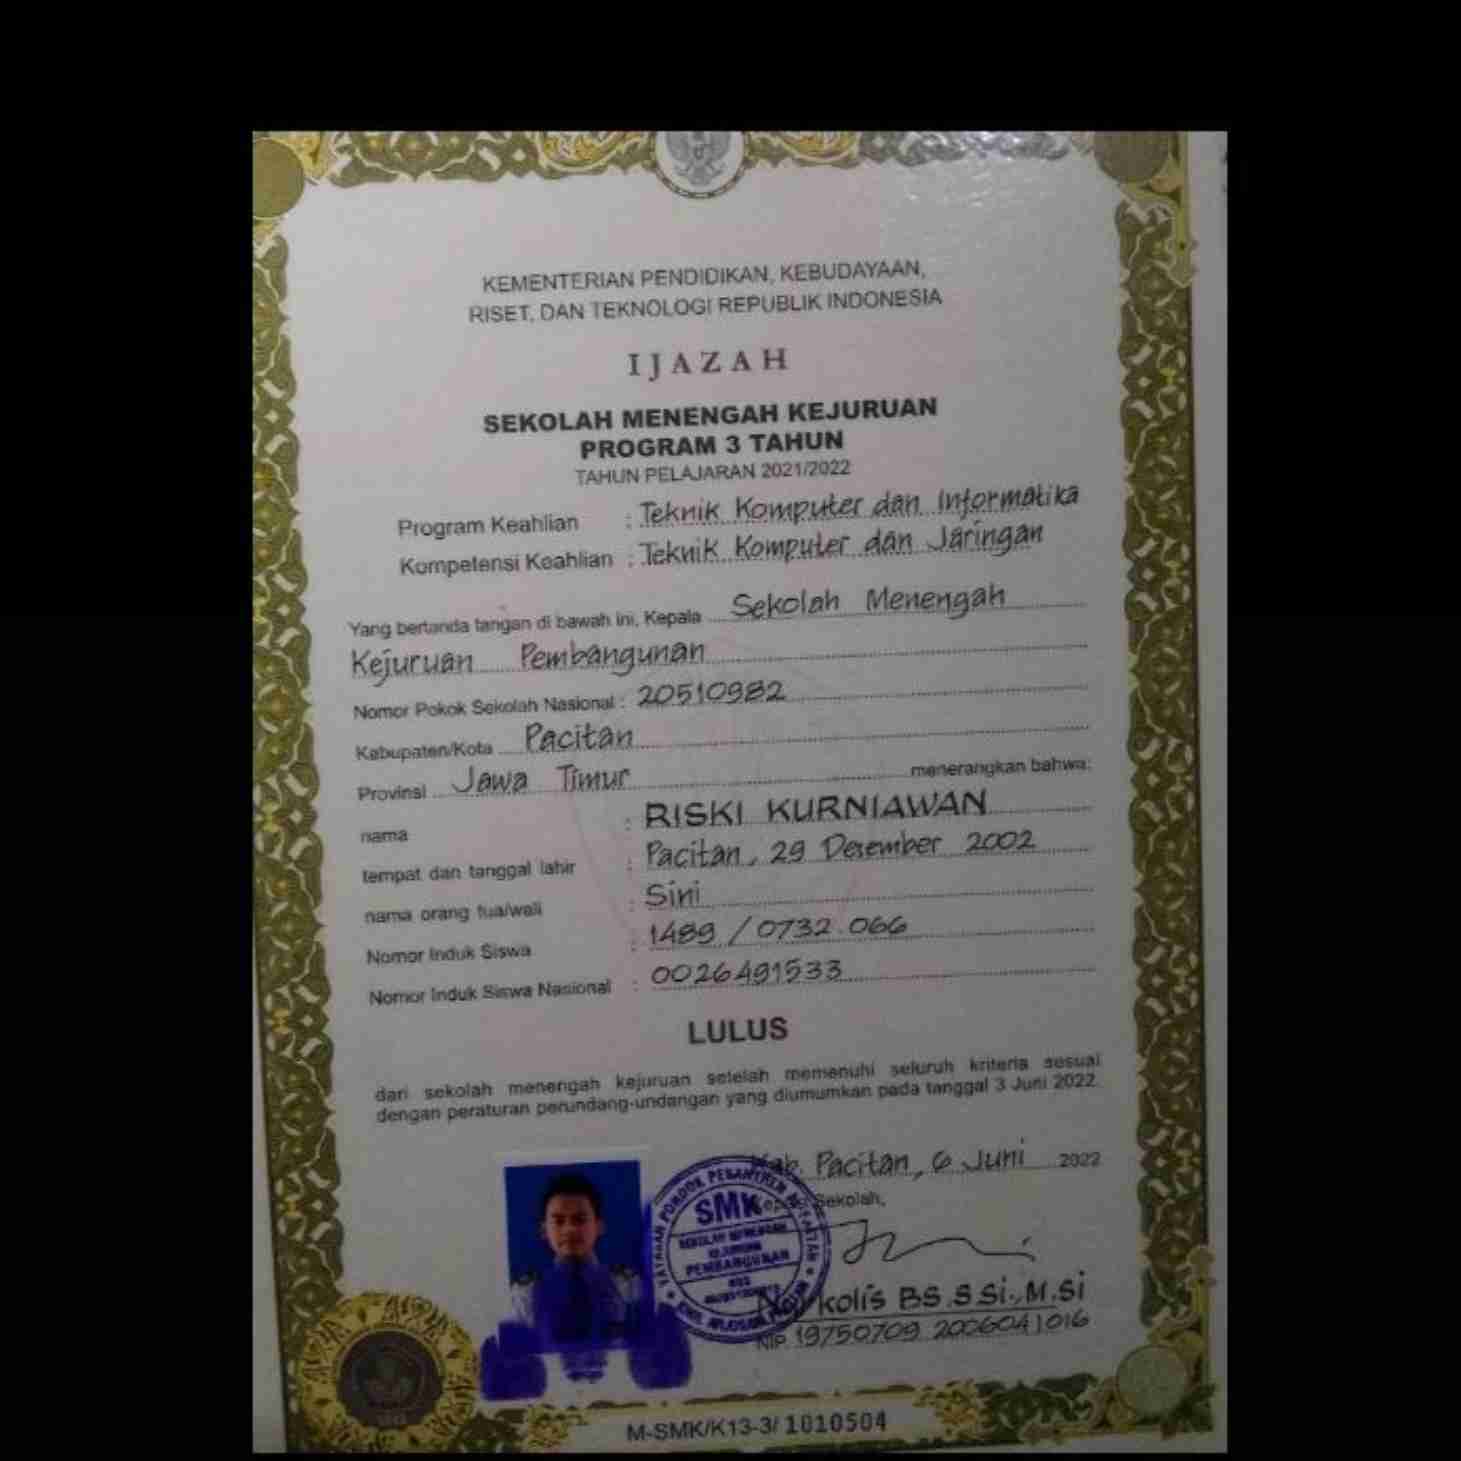 KEMENTERIAN PENDIDIKAN, KEBUDAYAAN,
RISET, DAN TEKNOLOGI REPUBLIK INDONESIA
IJAZAH
SEKOLAH MENENGAH KEJURUAN
PROGRAM 3 TAHUN
TAHUN PELAJARAN 2021/2022
Program Keahlian : Teknik Komputer dan Informatika
Kompetensi Keahlian : Teknik Komputer dan Jaringan
Yang bertanda tangan di bawah ini, Kepala Sekolah Menengah
Kejuruan Pembangunan
Nomor Pokok Sekolah Nasional : 20510982
Kabupaten/Kota Pacitan
Provinsi Jawa Timur menerangkan bahwa:
nama : RISKI KURNIAWAN
tempat dan tanggal lahir : Pacitan, 29 Desember 2002
nama orang tua/wali : Sini
Nomor Induk Siswa : 1489 / 0732.066
Nomor Induk Siswa Nasional : 0026491533
LULUS
dari sekolah menengah kejuruan setelah memenuhi seluruh kriteria sesuai
dengan peraturan perundang-undangan yang diumumkan pada tanggal 3 Juni 2022.
Kab. Pacitan, 6 Juni 2022
Kepala Sekolah,
YAYASAN PONDOK PESANTREN
SMK
SEKOLAH MENENGAH
KEJURUAN
PEMBANGUNAN
kolis BS.S Si., M.Si
NIP. 19750709 2006041016
M-SMK/K13-3/1010504